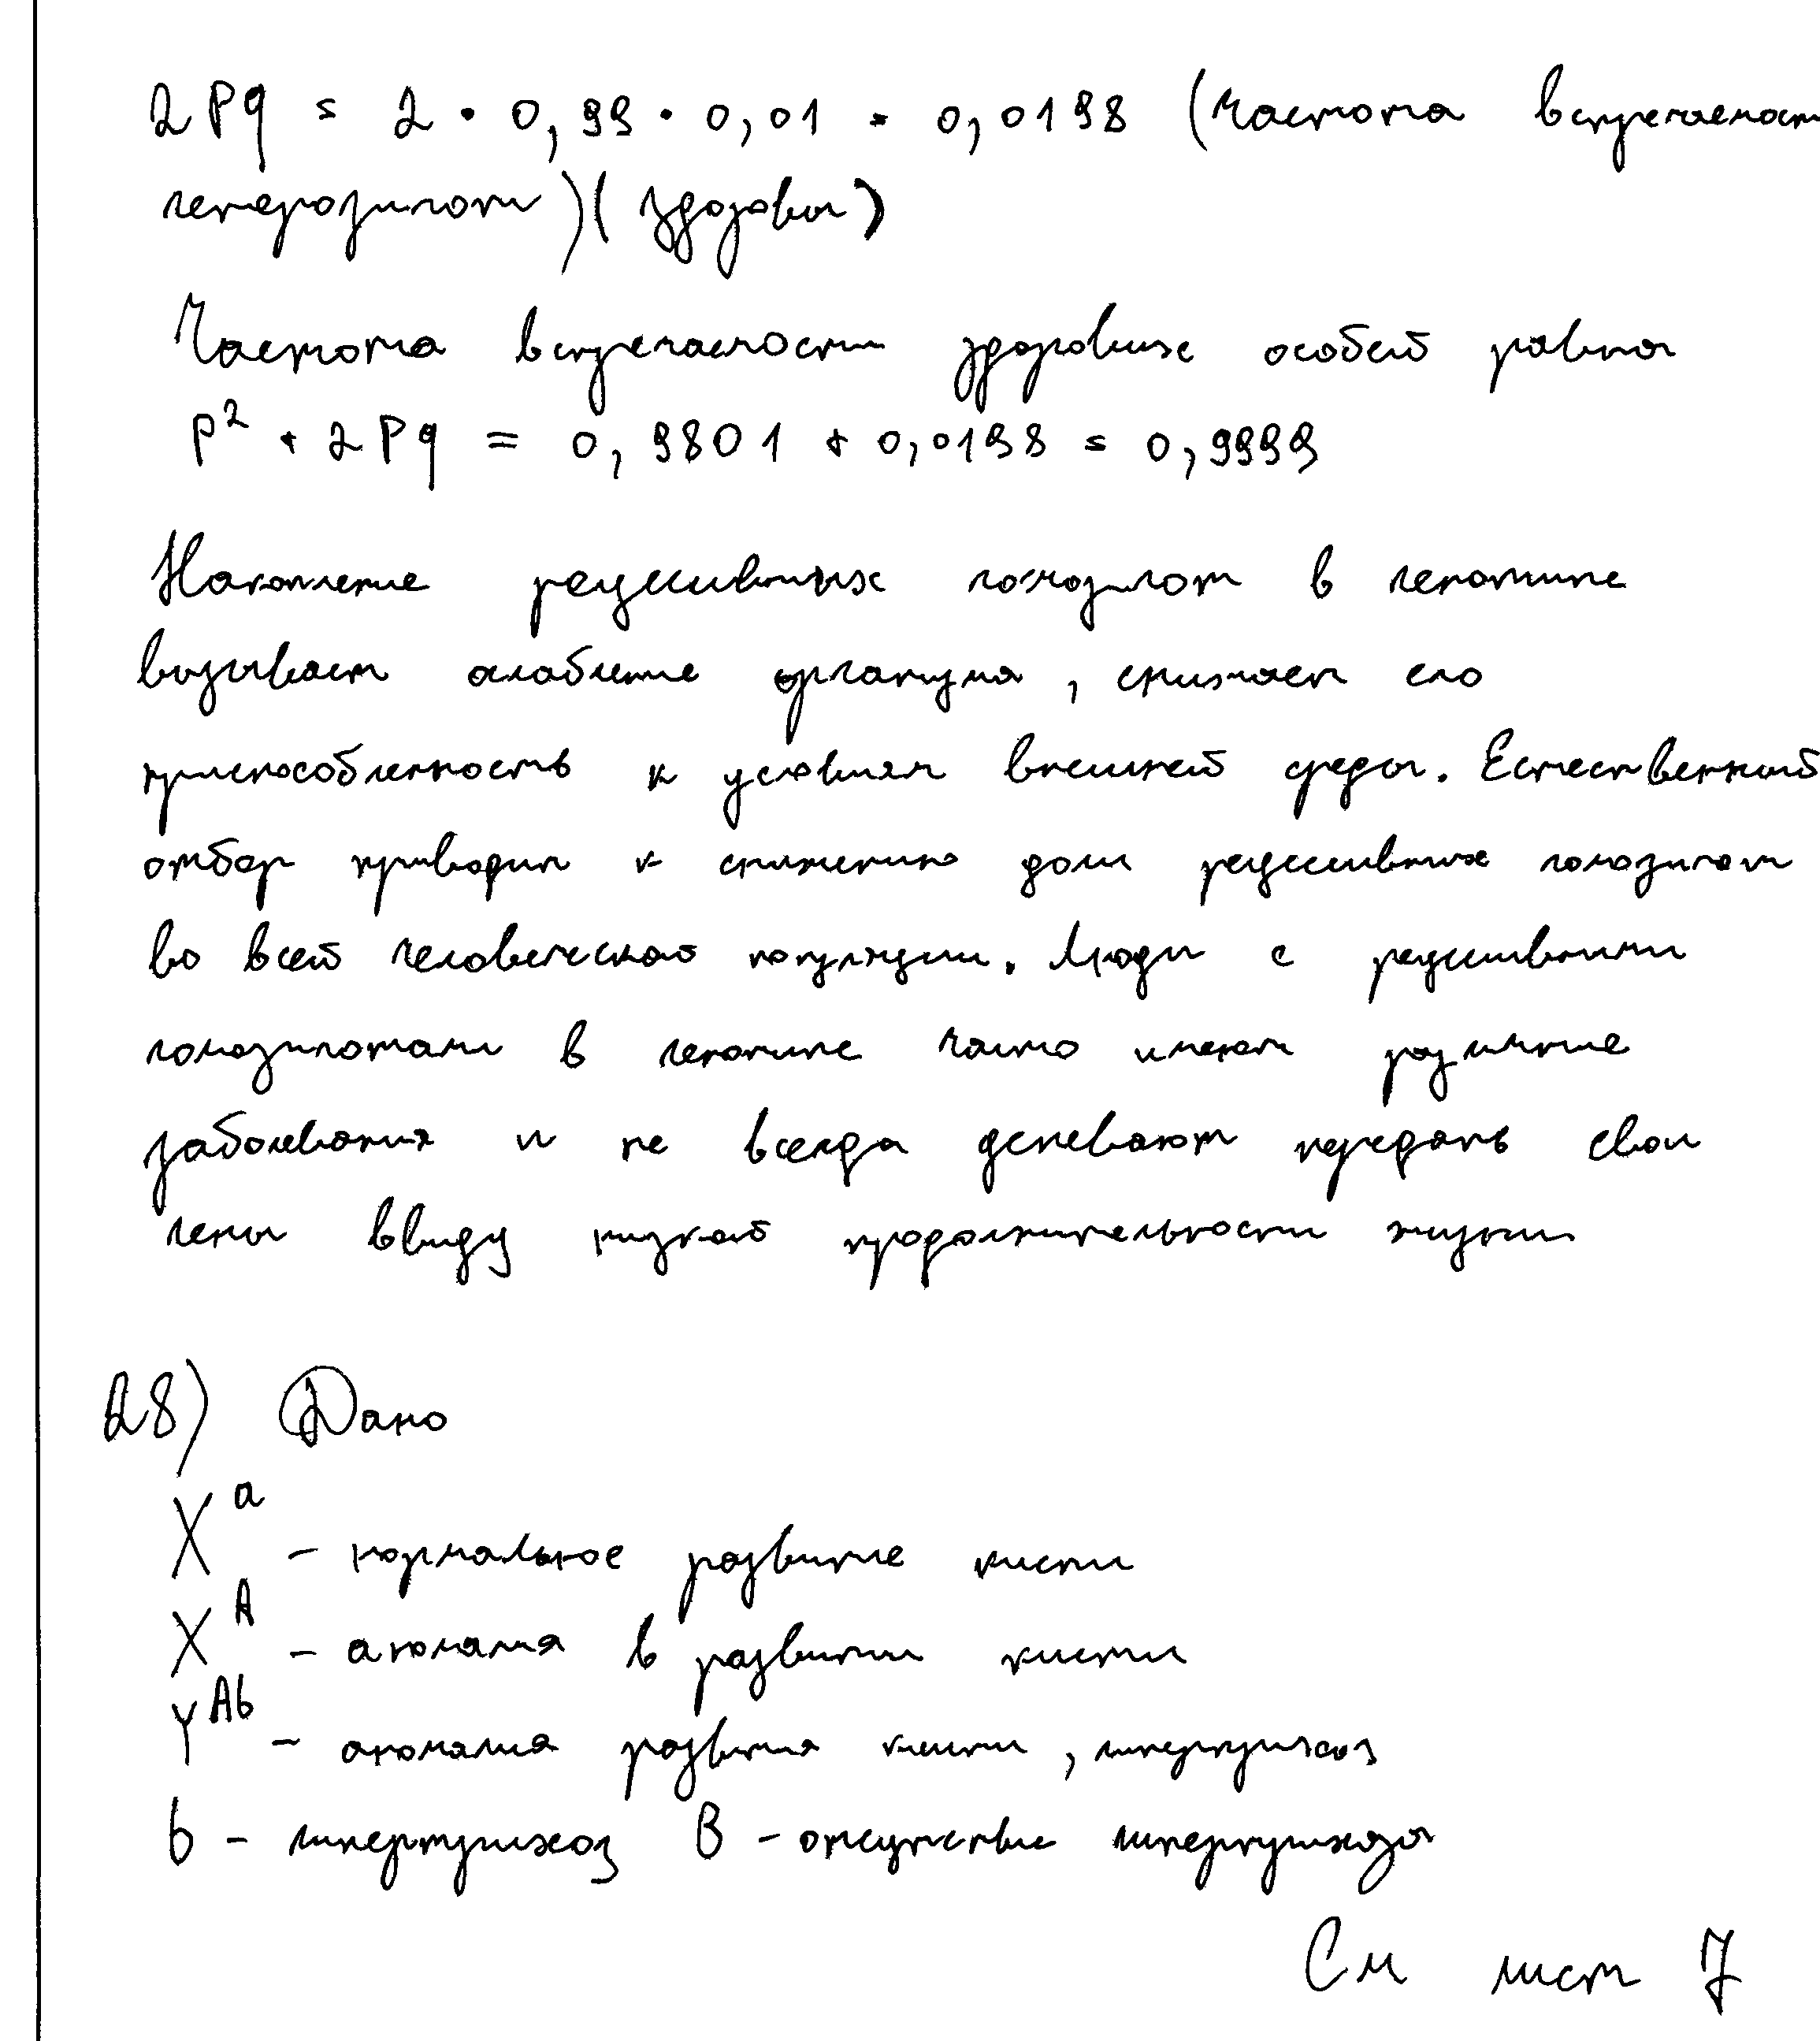 2Pq = 2 • 0,99 • 0,01 = 0,0198 (частота встречаемост
гетерозигот) (здоровы)
Частота встречаемости здоровых особей равна
P² + 2Pq = 0,9801 + 0,0198 = 0,9999
Накопление рецессивных гомозигот в генотипе
вызывает ослабление организма, снижает его
приспособленность к условиям внешней среды. Естественный
отбор приводит к снижению доли рецессивных гомозигот
во всей человеческой популяции. Люди с рецессивными
гомозиготами в генотипе часто имеют различные
заболевания и не всегда успевают передать свои
гены ввиду низкой продолжительности жизни
28) Дано
Xᵃ – нормальное развитие кисти
Xᴬ – аномалия в развитии кисти
Yᴬᵇ – аномалия развития кисти, гипертрихоз
b – гипертрихоз B – отсутствие гипертрихоза
См лист 7